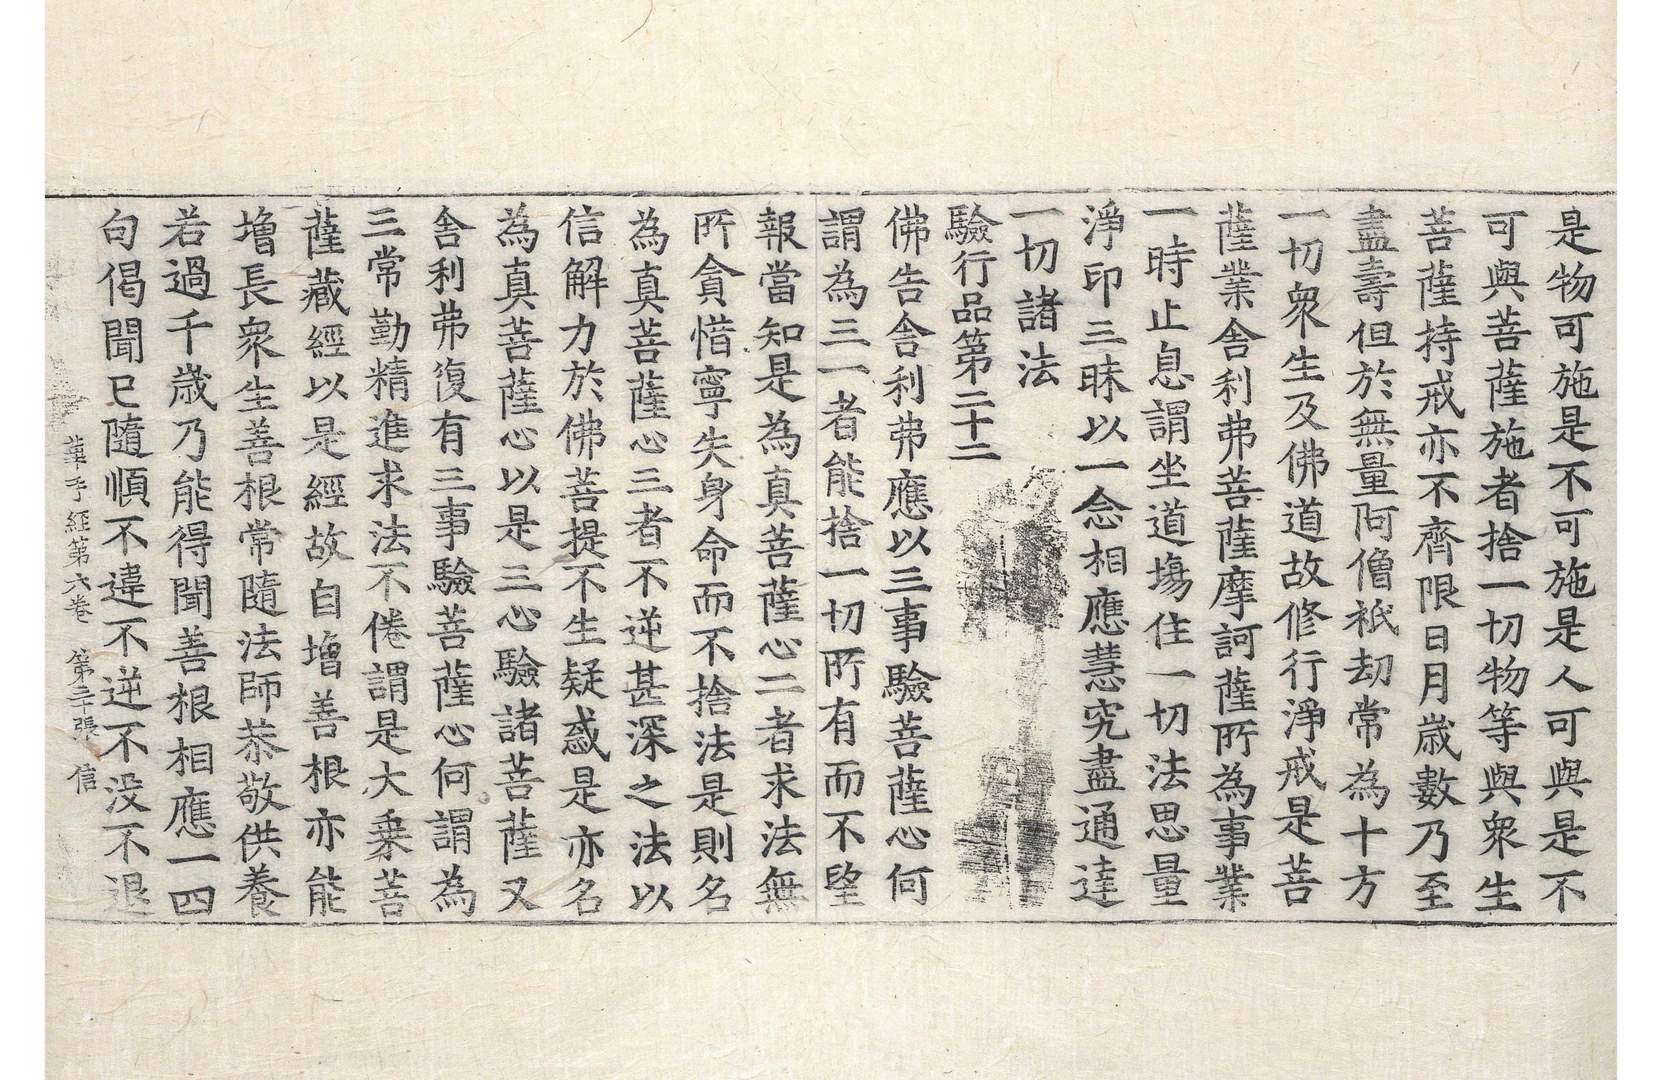 是物可施是不可施是人可與是不
可與菩薩施者捨一切物等與衆生
菩薩持戒亦不齊限日月歲數乃至
盡壽但於無量阿僧祇劫常為十方
一切衆生及佛道故修行淨戒是菩
薩業舍利弗菩薩摩訶薩所為事業
一時止息謂坐道場住一切法思量
淨印三昧以一念相應慧究盡通達
一切諸法
驗行品第二十二
佛告舍利弗應以三事驗菩薩心何
謂為三一者能捨一切所有而不望
報當知是為真菩薩心二者求法無
所貪惜寧失身命而不捨法是則名
為真菩薩心三者不逆甚深之法以
信解力於佛菩提不生疑惑是亦名
為真菩薩心以是三心驗諸菩薩又
舍利弗復有三事驗菩薩心何謂為
三常勤精進求法不倦謂是大乘菩
薩藏經以是經故自增善根亦能
增長衆生善根常隨法師恭敬供養
若過千歲乃能得聞善根相應一四
句偈聞已隨順不違不逆不沒不退
華手經第六卷 第二十張 信